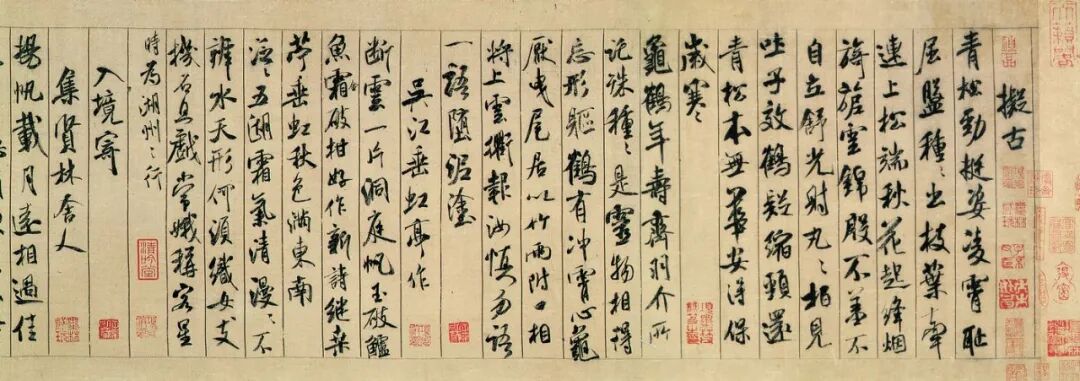 擬古
青松勁挺姿凌霄恥
屈盤種〻出枝葉牽
連上松端秋花起絳烟
旖旎雲錦殷不羞不
自立舒光射丸〻柏見
吐子效鶴疑縮頸還
青松本無華安得保
歲寒〻
龜鶴年壽齊羽介所
託殊種〻是靈物相得
忘形軀鶴有冲霄心龜
厭曳尾居以竹兩附口相
將上雲衢報汝慎勿語
一語墮泥塗
吳江垂虹亭作
断雲一片洞庭帆玉破鱸
魚霜破柑好作新詩継桑
苧垂虹秋色滿東南
泛〻五湖霜氣清漫〻不
辨水天形何須織女支
機石且戲常娥稱客星
時為湖州之行
入境寄
集賢林舍人
揚帆載月遠相過佳